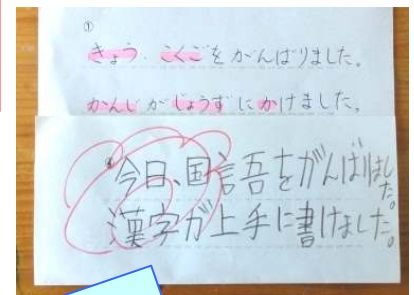 ①
きょう、こくごをがんばりました。
かんじがじょうずにかけました。
今日、国語をがんばりました。
漢字が上手に書けました。